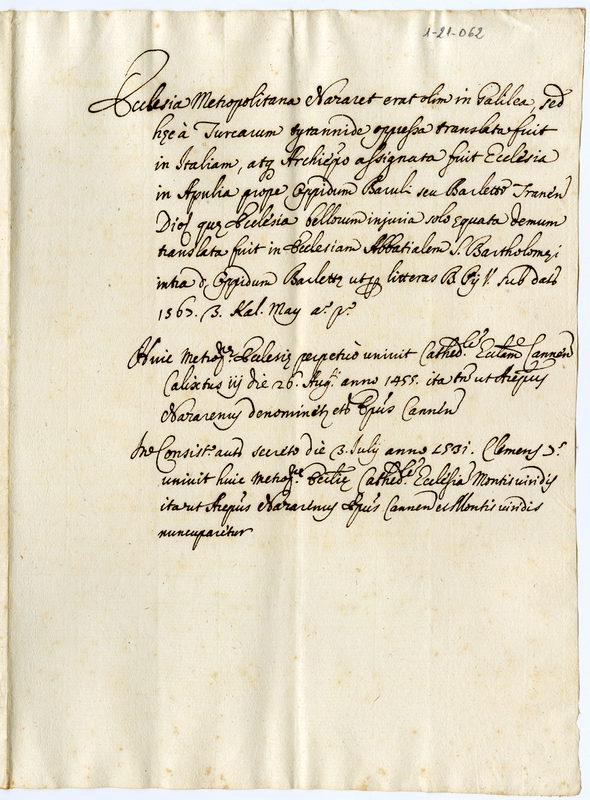 1-21-062
Ecclesia Metropolitana Nazaret erat olim in Galilea, sed
hęc à Turcarum tyrannide oppressa translata fuit
in Italiam, atq Archiepo assignata fuit Ecclesia
in Apulia prope Oppidum Baruli seu Barletta Tranen
Dioc quę Ecclesia bellorum iniuria solo equata demum
translata fuit in Ecclesiam Abbatialem S. Bartholomęi
intra d. Oppidum Barlettę ut litteras B. Pij V. sub dat
1567. 3. Kal. May a.º p.º
Huic Metropne Ecclesię perpetuò univit Cathedlem Ecclam Cannen
Calixtus iij die 26. Augti anno 1455. ita tn ut Arepus
Nazarenus denominet et Epus Cannen
In Consist. secreto die 3. July anno 1531. Clemens 7.s
univit huic Metropne Ecclię Cathedlem Ecclesia Montisviridis
ita ut Arepus Nazarenus Epus Cannen et Montis viridis
nuncuparetur